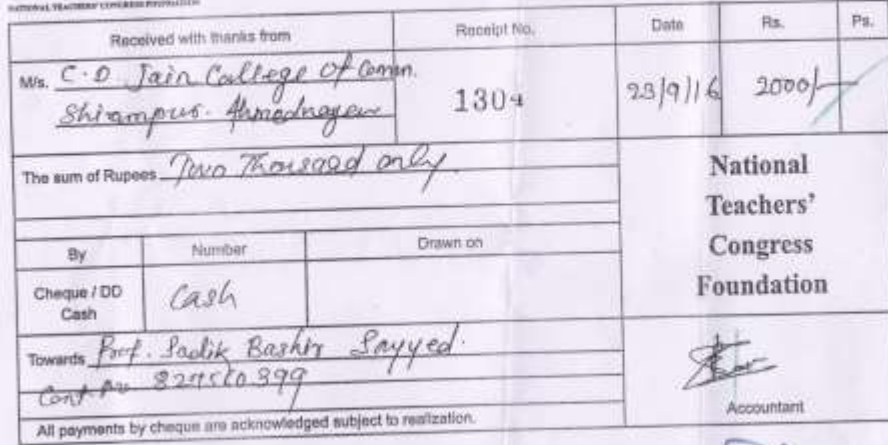 NATIONAL TEACHERS' CONGRESS FOUNDATION
Received with thanks from
Receipt No.
Date
Rs.
Ps.
M/s. C.D Jain College of Comm.
Shirampur. Ahmednagar
1304
23/9/16
2000/-
The sum of Rupees Two Thousand only.
National
Teachers'
Congress
Foundation
By
Number
Drawn on
Cheque / DD
Cash
Cash
Towards Prof. Sadik Bashir Sayyed.
Cont No
Accountant
All payments by cheque are acknowledged subject to realization.